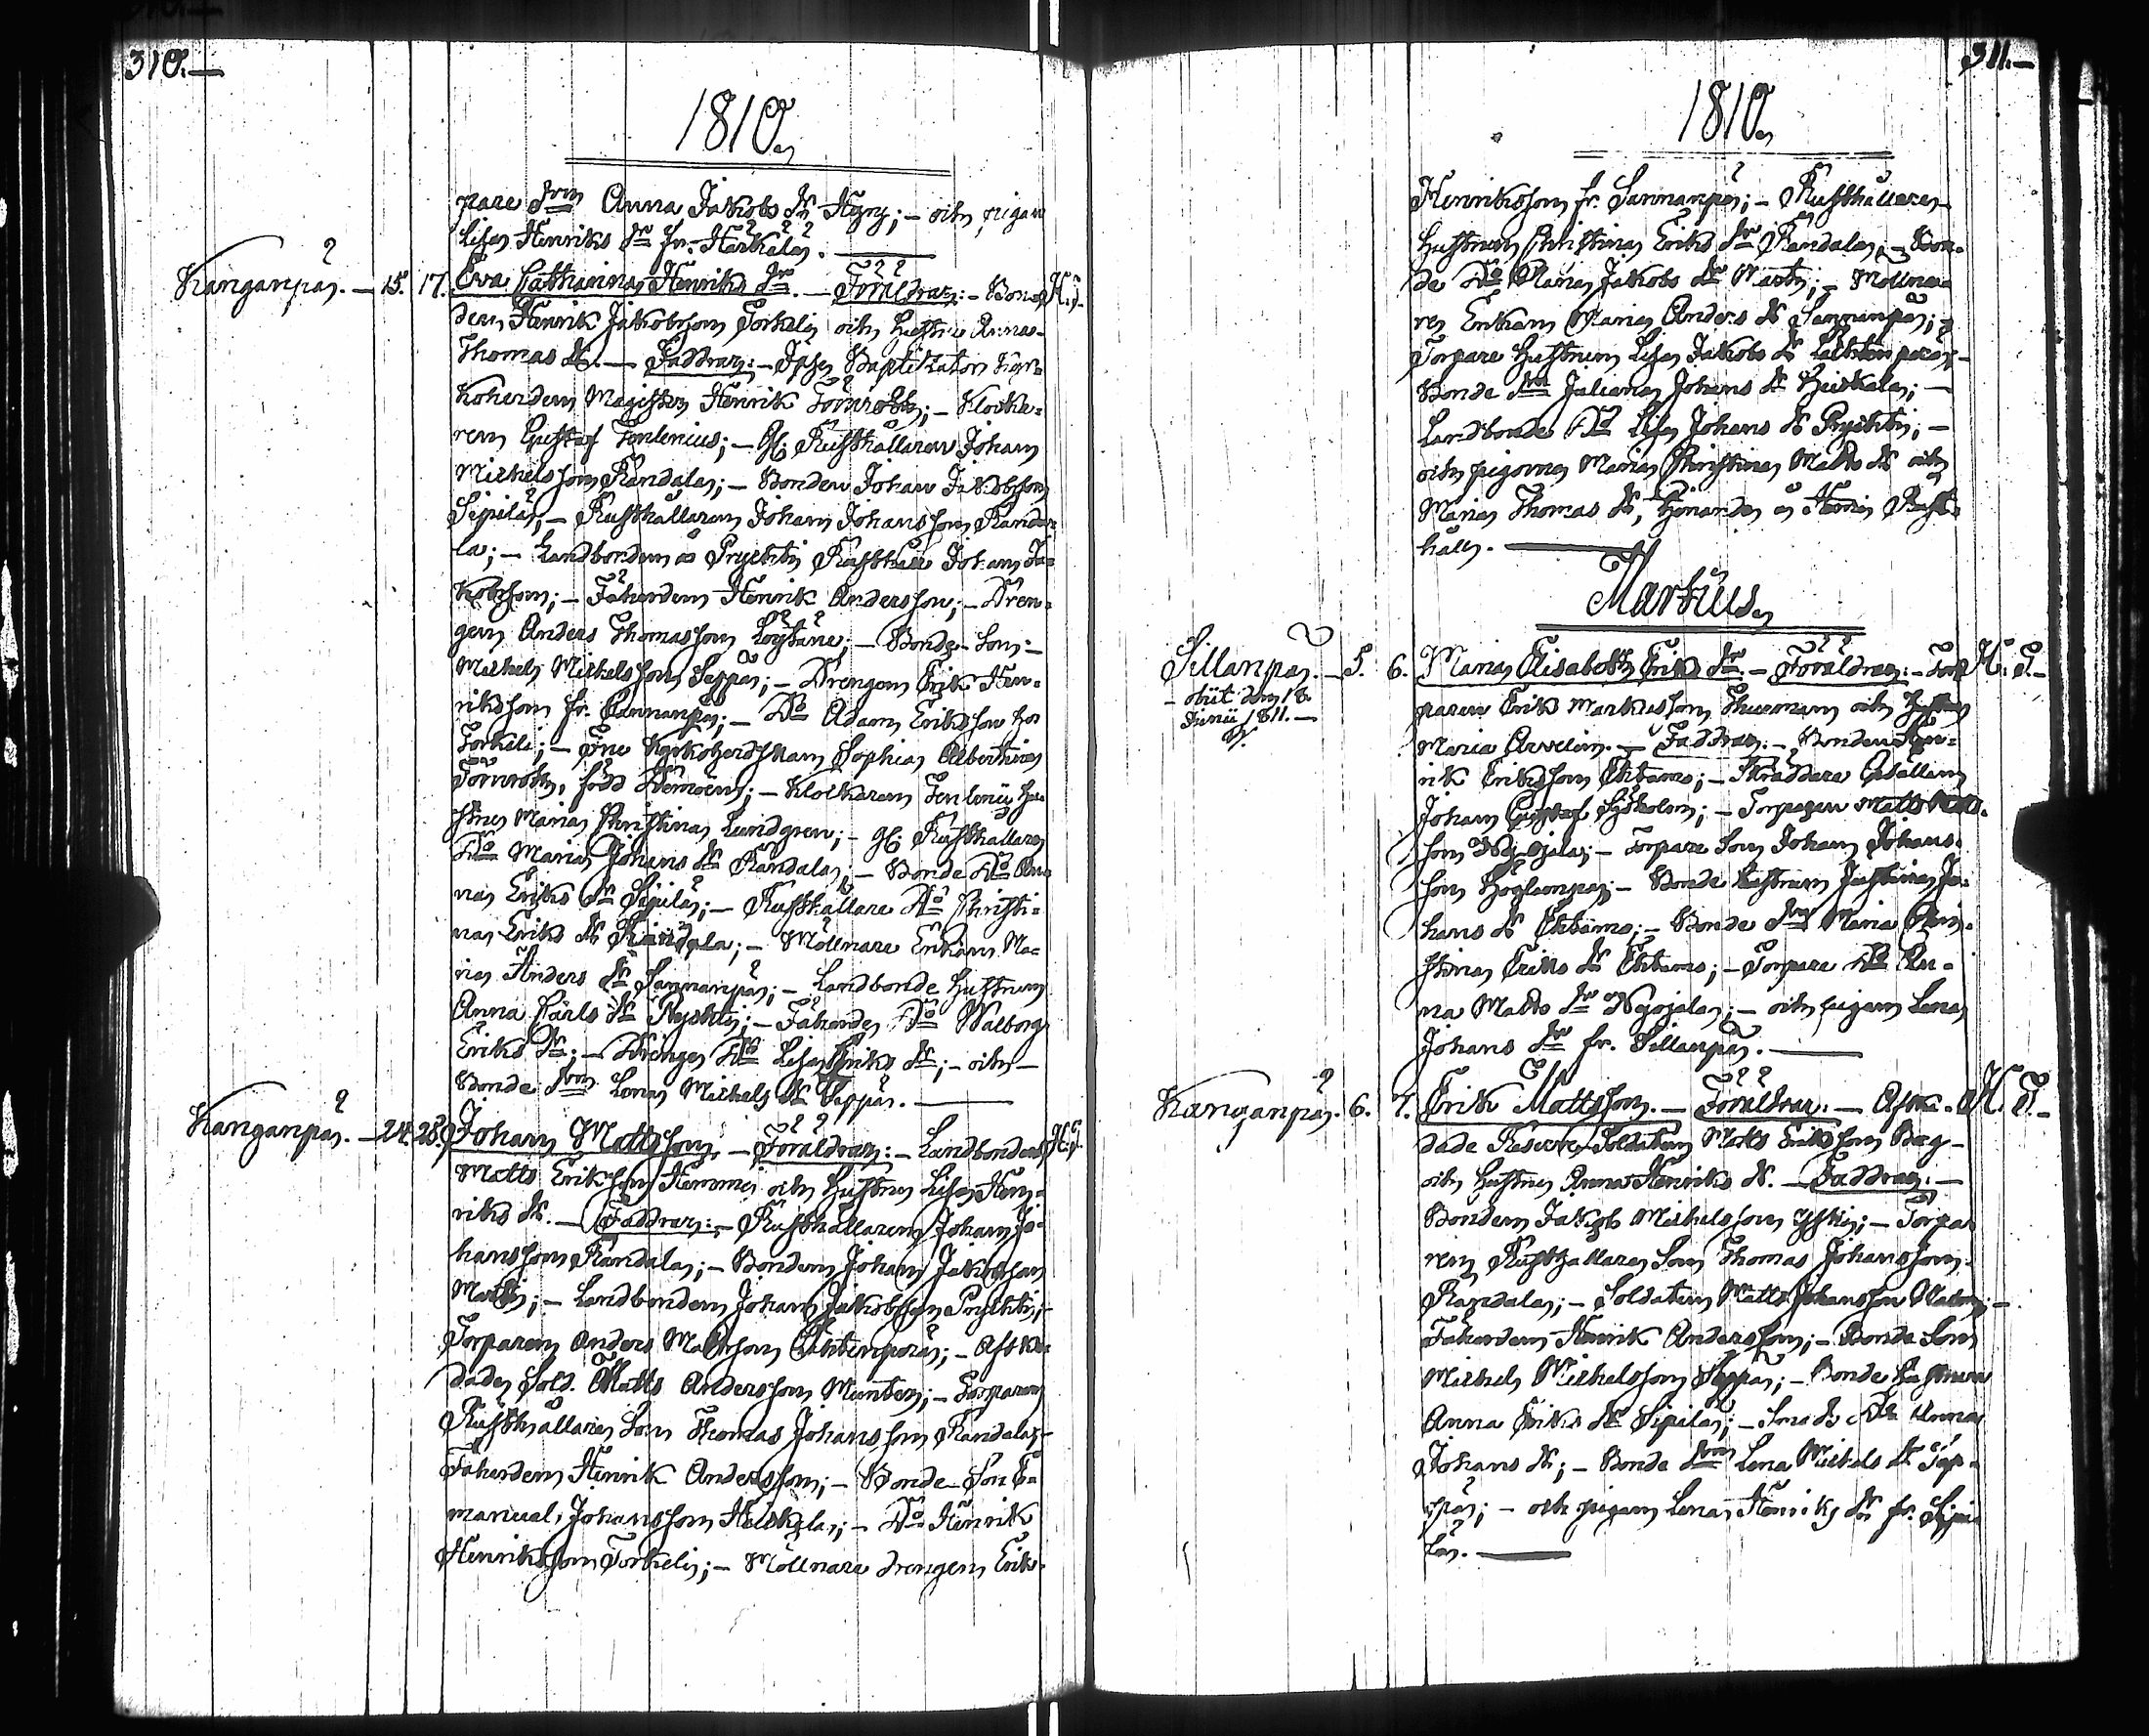 310.
1810.
pare drn Anna Jakobs dr Hyry; – och pigan
Lisa Henriks dr fr. Härkälä.
Kanganpää. – 15. 17. Eva Catharina Henriks dr. – Föräldrar: – Bon- H. T.
den Henrik Jakobsson Torkeli och hustru Anna
Thomas dr. – Faddrar: – Ipse Baptizator Kyr-
koherden Magister Henrik Törnroth; – Klocka-
ren Gustaf Tenlenius; – gl. Rusthållaren Johan
Michelsson Randala; – Bonden Johan Jakobsson
Sipilä; – Rusthållaren Johan Johansson Randa-
la; – Landbonden å Prykti Rusthåll Johan Ja-
kobsson; – Fäherden Henrik Andersson; – Dren-
gen Anders Thomasson Löytäne; – Bonde Son
Michel Michelsson Seppä; – Drengen Erik Hen-
riksson fr. Sannanpää; – Do Adam Eriksson hos
Torkeli; – Fru Kyrkoherdskan Sophia Albertina
Törnroth, född; – Klockaren Tenlenii hu-
stru Maria Christina Lundgren; – gl. Rusthållare
Do Maria Johans dr Randala; – Bonde Do An-
na Eriks dr Sipilä; – Rusthållare Do Christi-
na Eriks dr Randala; – Möllnare Enkan Ma-
ria Anders dr Sannanpää; – Landbonde hustrun
Anna Carls dr Prykti; – Fäherde Do Walborg
Eriks dr; – Drenge Do Lisa Eriks dr; – och
Bonde drn Lena Michels dr Seppä.
Kanganpää. – 24. 28. Johan Mattsson. – Föräldrar: – Landbonden H. T.
Matts Eriksson Hemmi och hustru Lisa Hen-
riks dr. – Faddrar: – Rusthållaren Johan Jo-
hansson Randala; – Bonden Johan Jakobsson
Martti; – Landbonden Johan Jakobsson Prykti;
Torparen Anders Mattsson Lähtenperä; – Afske-
dade Sold. Matts Andersson Munter; – Torparen
Rusthållare Son Thomas Johansson Randala;
Fäherden Henrik Andersson; – Bonde Son E-
manuel Johansson Heiskala; – Do Henrik
Henriksson Torkeli; – Möllnare drengen Erik
311.
1810.
Henriksson fr. Sannanpää; – Rusthållare
hustrun Christina Eriks dr Randala; – Bon-
de Do Maria Jakobs dr Martti; – Möllna-
re Enkan Maria Anders dr Sannanpää;
Torpare hustrun Lisa Jakobs dr Lähtenperä;
Bonde drn Juliana Johans dr Heiskala; –
Landbonde Do Lisa Johans dr Prykti; –
och pigorna Maria Christina Matts dr och
Maria Thomas dr, tjenande å Rust-
håll.
Martius
Sillanpää. – 5. 6. Maria Elisabeth Eriks dr. – Föräldrar: – Tor- H. T.
– obiit den 18.
Junii 1811. –
paren Erik Markusson Thurman och hustru
Maria Arvelin. – Faddrar: – Bonden Hen-
rik Eriksson; – Skräddare Gesällen
Johan Gustaf Sjöholm; – Torparen Matts Matts-
son Nygojala; – Torpare Son Johan Johans-
son; – Bonde hustrun Justina Jo-
hans dr; – Bonde drn Maria Chri-
stina Eriks dr; – Torpare Do An-
na Matts dr Nygojala; – och pigan Lena
Johans dr fr. Sillanpää.
Kanganpää. 6. 7. Erik Mattsson. – Föräldrar: – Afske- H. T.
dade Reserve Soldaten Matts Eriksson Berg
och hustru Anna Henriks dr. – Faddrar: –
Bonden Jakob Michelsson Yski; – Torpa-
ren Rusthållare Son Thomas Johansson
Randala; – Soldaten Matts Johansson; –
Fäherden Henrik Andersson; – Bonde Son
Michel Michelsson Seppä; – Bonde hustrun
Anna Eriks dr Sipilä; – Do Anna
Johans dr; – Bonde drn Lena Michels dr Sep-
pä; – och pigan Lena Henriks dr fr. Sipi-
lä.